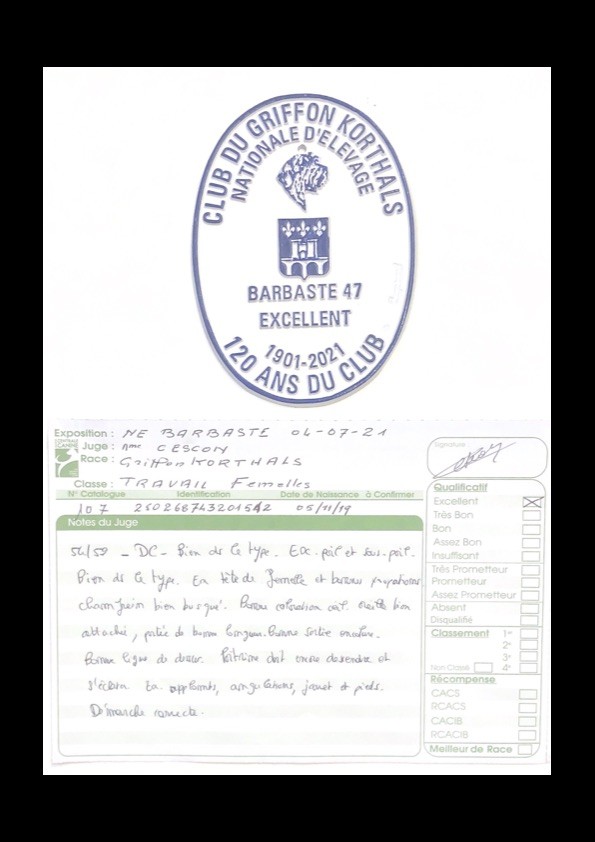 CLUB DU GRIFFON KORTHALS
NATIONALE D'ELEVAGE
BARBASTE 47
EXCELLENT
1901-2021
120 ANS DU CLUB
Exposition : NE BARBASTE 04-07-21
CENTRALE CANINE
Juge : Mme CESCON
Race : Griffon KORTHALS
Classe : TRAVAIL Femelles
N° Catalogue Identification Date de Naissance à Confirmer
107 05/11/19
Notes du Juge
DC - Bien ds le type. Exc. poil et sous-poil.
Bien ds le type. Exc tête de femelle et bonnes proportions,
chanfrein bien busqué. Bonne coloration œil. oreille bien
attachée, portée de bonne longueur. Bonne sortie encolure.
Bonne ligne de dessus. Poitrine doit encore descendre et
s'éclater. Exc. applombs, angulations, fouet et pieds.
Démarche correcte.
Signature
Qualificatif
Excellent
Très Bon
Bon
Assez Bon
Insuffisant
Très Prometteur
Prometteur
Assez Prometteur
Absent
Disqualifié
Classement 1er
2e
3e
Non Classé 4e
Récompense
CACS
RCACS
CACIB
RCACIB
Meilleur de Race